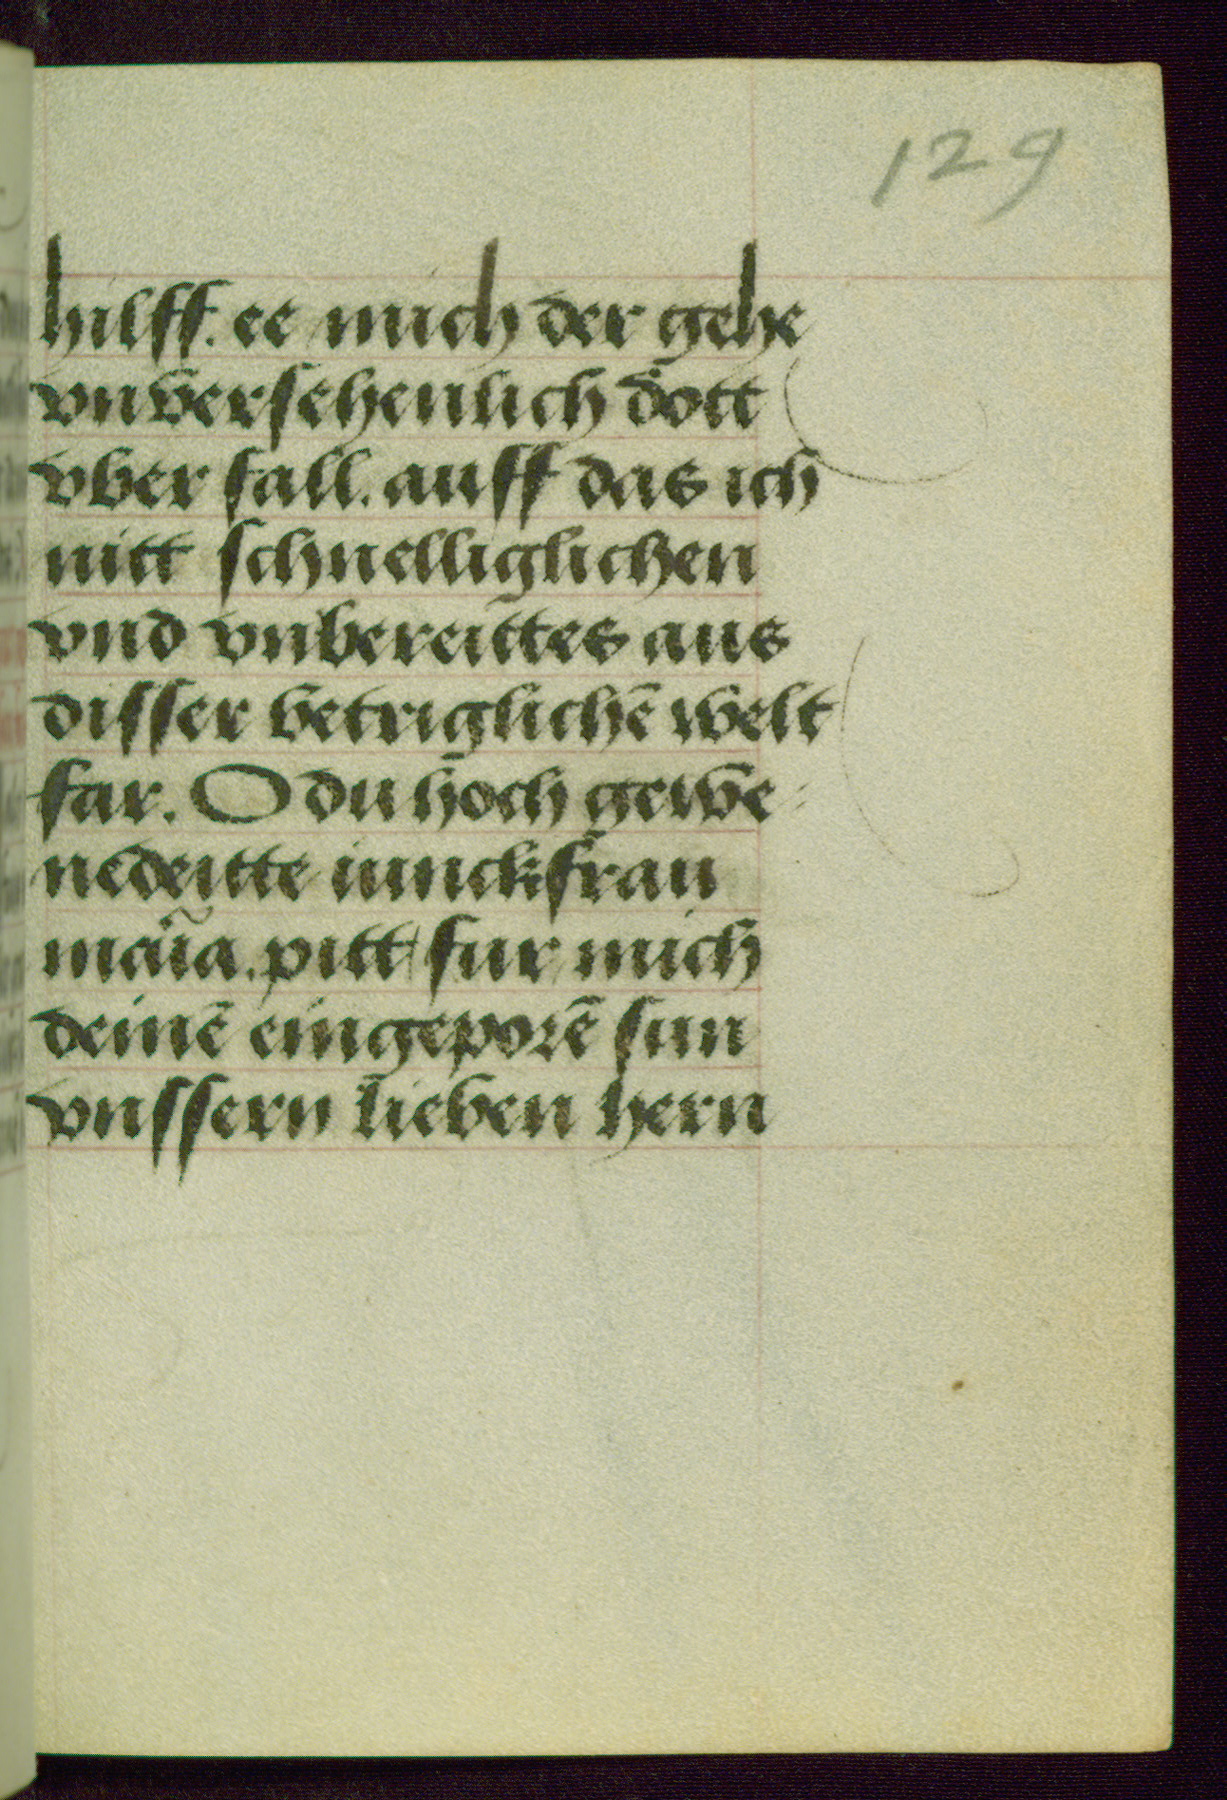 129
hilff. ee mich der gehe
vnversehenlich dott
vber fall. auff das ich
nitt schnelliglichen
vnd vnbereittes aus
disser betriglichē welt
far. O du hoch gewe=
nedeytte iunckfrau
mar̃ia. pitt fur mich
deinē eingeporē sun
vnssern lieben hern